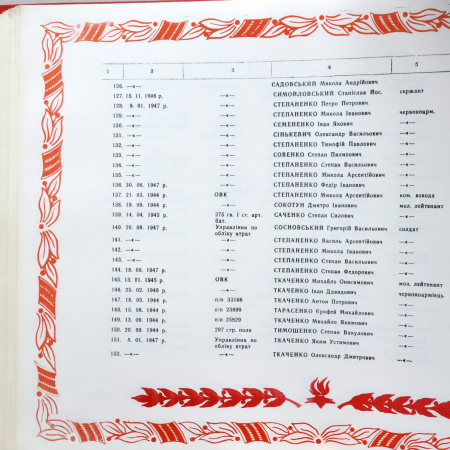 1 2 3 4 5
126. —«— САДОВСЬКИЙ Микола Андрійович
127. 15. 11. 1946 р. —«— СИМОЙЛОВСЬКИЙ Станіслав Йос. сержант
128. 8. 01. 1947 р. —«— СТЕПАНЕНКО Петро Петрович —«—
129. —«— —«— СТЕПАНЕНКО Микола Іванович червоноарм.
130. —«— —«— СЕМЕНЕНКО Іван Якович —«—
131. —«— —«— СІНЬКЕВИЧ Олександр Васильович —«—
132. —«— —«— СТЕПАНЕНКО Тимофій Павлович —«—
133. —«— —«— СОВЕНКО Степан Пилипович —«—
134. —«— —«— СТЕПАНЕНКО Степан Васильович —«—
135. —«— —«— СТЕПАНЕНКО Микола Арсентійович —«—
136. 30. 06. 1947 р. —«— СТЕПАНЕНКО Федір Іванович —«—
137. 21. 03. 1944 р. ОВК СТЕПАНЕНКО Микола Арсентійович ком. взвода
138. 19. 09. 1944 р. —«— СОКОТУН Дмитро Іванович мол. лейтенант
139. 14. 04. 1945 р. 275 гв. І ст. арт. САЧЕНКО Степан Силович —«—
бат.
140. 20. 08. 1947 р. Управління по СОСНОВСЬКИЙ Григорій Васильович солдат
обліку втрат
141. —«— —«— СТЕПАНЕНКО Василь Арсентійович —«—
142. —«— —«— СТЕПАНЕНКО Микола Іванович —«—
143. —«— —«— СТЕПАНЕНКО Степан Васильович —«—
144. 18. 08. 1947 р. —«— СТЕПАНЕНКО Степан Федорович —«—
145. 13. 01. 1945 р. ОВК ТКАЧЕНКО Михайло Онисимович мол. лейтенант
146. 25. 02. 1946 р. —«— ТКАЧЕНКО Іван Давидович червоноармієць
147. 18. 05. 1944 р. п/п 33186 ТКАЧЕНКО Антон Петрович —«—
148. 15. 06. 1944 р. п/п 23899 ТАРАСЕНКО Єрофей Михайлович —«—
149. 13. 09. 1944 р. п/п 25829 ТКАЧЕНКО Михайло Якимович —«—
150. 20. 09. 1944 р. 297 стр. полк ТИМОШЕНКО Степан Вакулович —«—
151. 8. 01. 1947 р. Управління по ТКАЧЕНКО Яким Устимович —«—
обліку втрат
152. —«— —«— ТКАЧЕНКО Олександр Дмитрович —«—